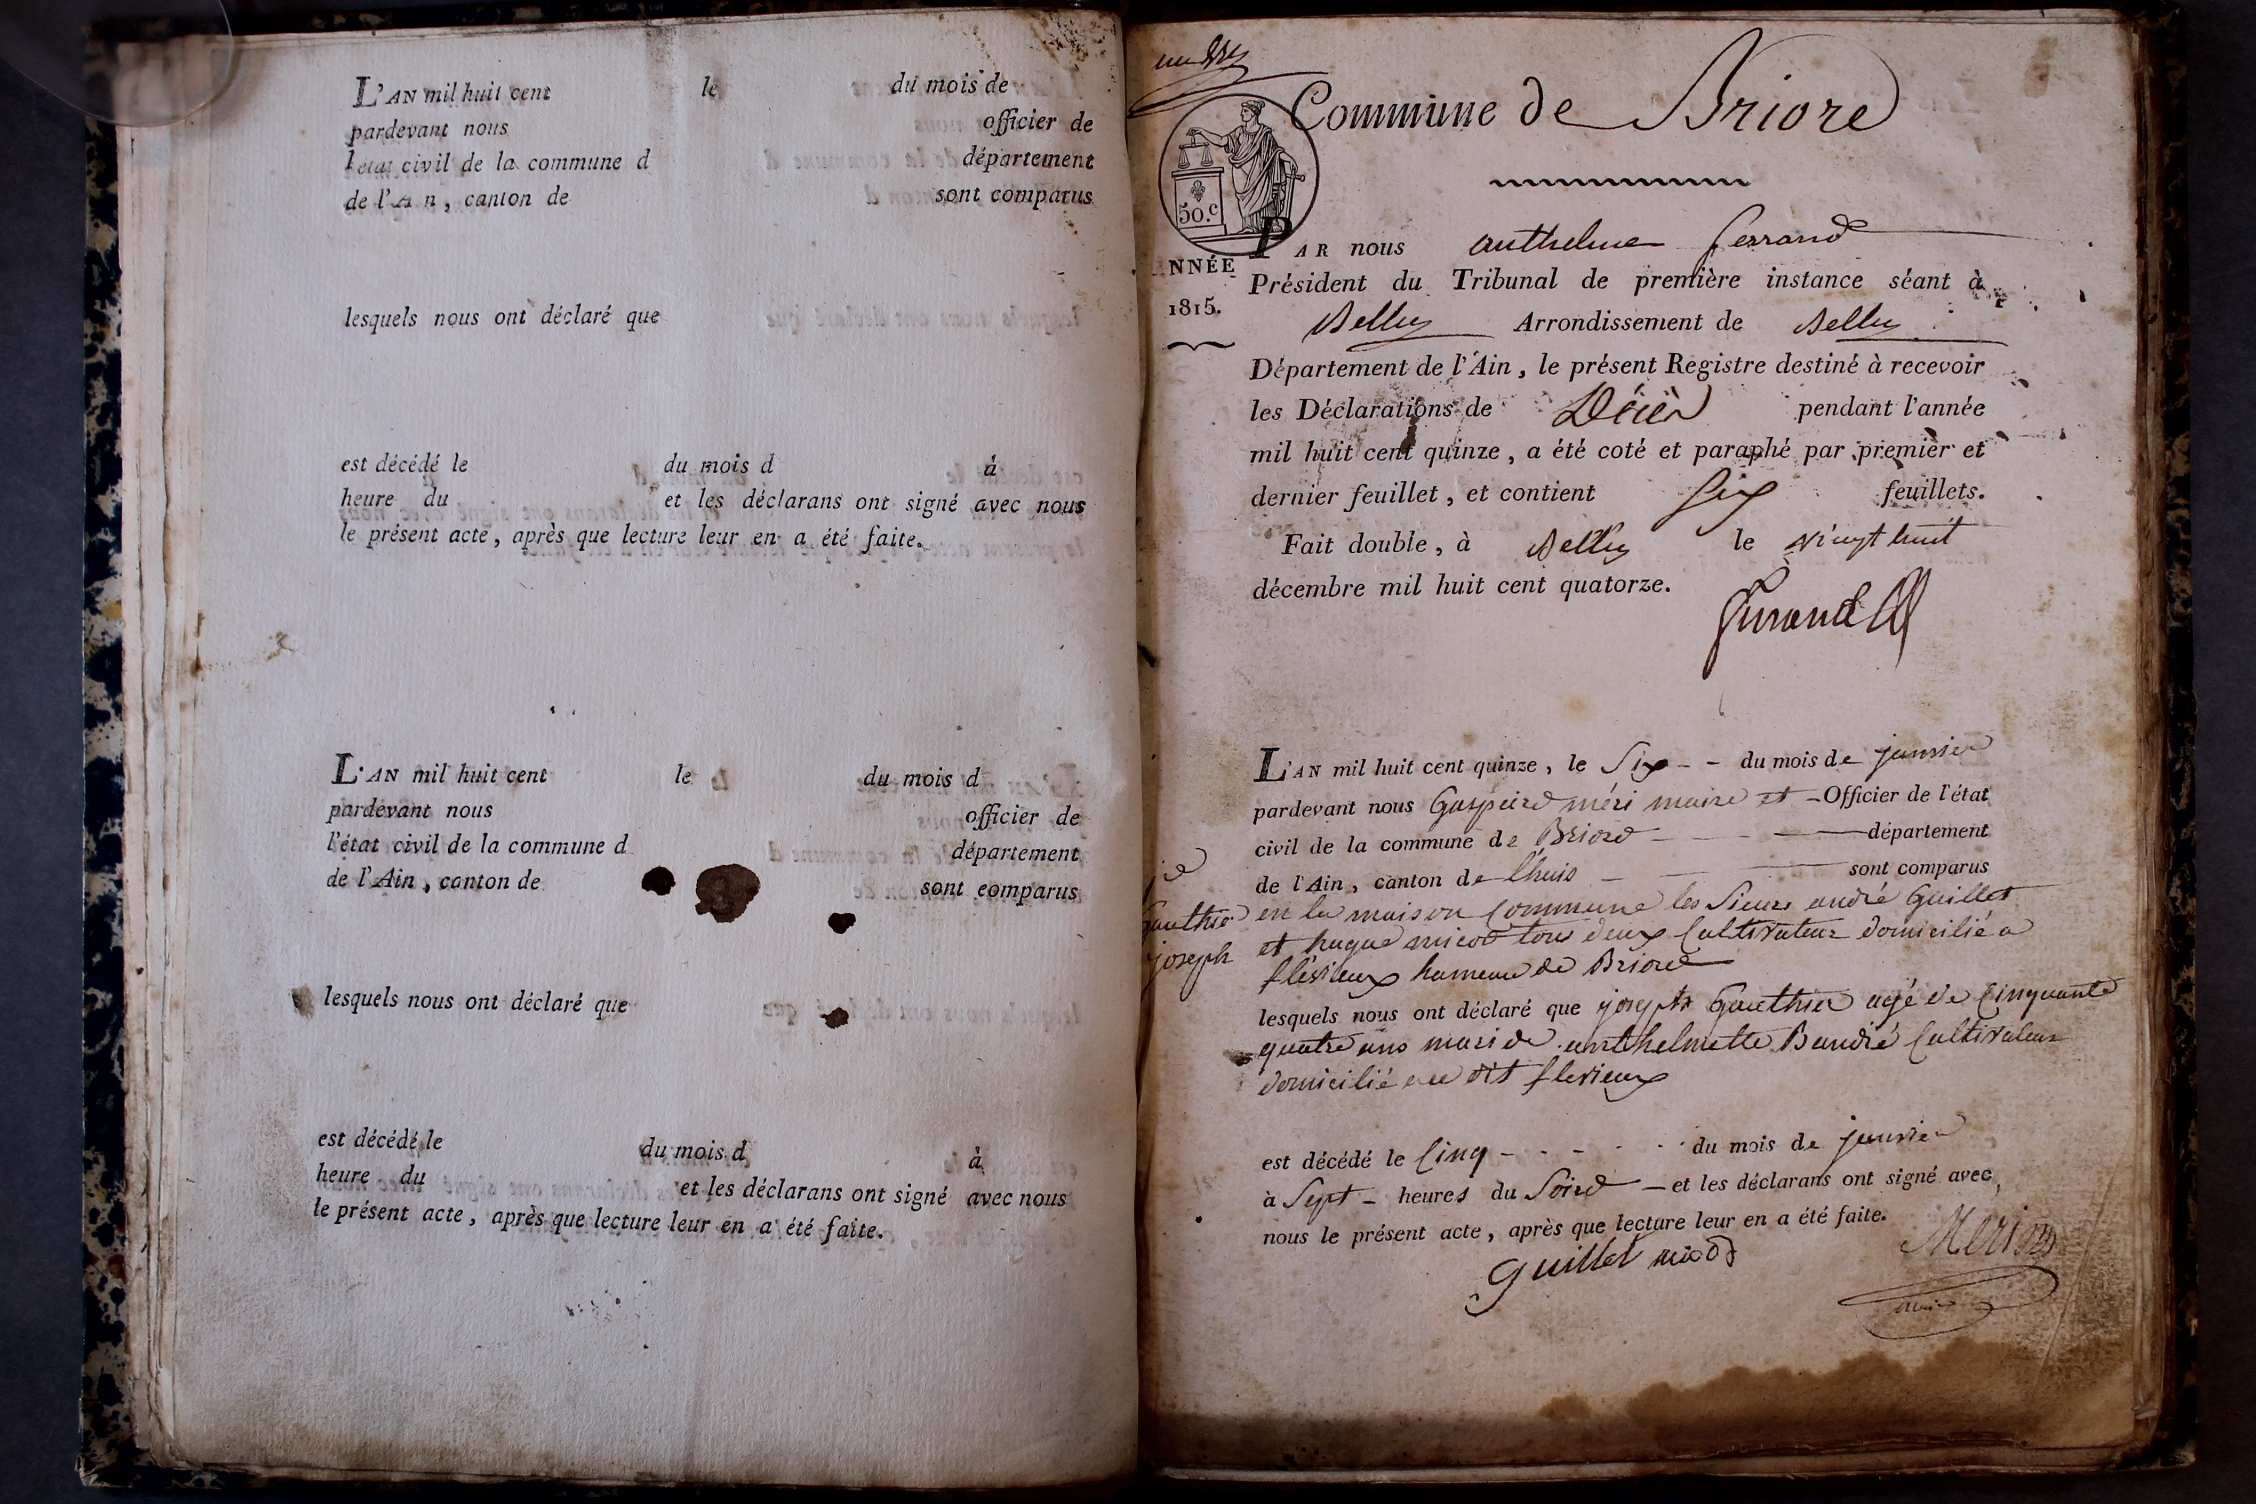 L'AN mil huit cent le du mois de
pardevant nous officier de
l'état civil de la commune d département
de l'Ain, canton de sont comparus
lesquels nous ont déclaré que
est décédé le du mois d à
heure du et les déclarans ont signé avec nous
le présent acte, après que lecture leur en a été faite.
L'AN mil huit cent le du mois d
pardevant nous officier de
l'état civil de la commune d département
de l'Ain, canton de sont comparus
lesquels nous ont déclaré que
est décédé le du mois d à
heure du et les déclarans ont signé avec nous
le présent acte, après que lecture leur en a été faite.
Commune de Briore
50.c
PAR nous anthelme ferrand
ANNÉE
1815.
Président du Tribunal de première instance séant à
Belley Arrondissement de Belley
Département de l'Ain, le présent Registre destiné à recevoir
les Déclarations de Décès pendant l'année
mil huit cent quinze, a été coté et paraphé par premier et
dernier feuillet, et contient Six feuillets.
Fait double, à Belley le vingt huit
décembre mil huit cent quatorze.
L'AN mil huit cent quinze, le Six - - du mois de janvier
pardevant nous Gaspard méri maire et - Officier de l'état
civil de la commune de Briord département
de l'Ain, canton de lhuis sont comparus
Gauthier
joseph
en la maison Commune les Sieurs andré Guillet
et hugue micod tous deux Cultivateur domicilié a
flévieux hameau de Briord
lesquels nous ont déclaré que joseph Gauthier agé de Cinquante
quatre ans mari de anthelmette Baudré Cultivateur
domicilié au dit flevieux
est décédé le Cinq - - - - - du mois de janvier
à Sept - heures du Soird - et les déclarans ont signé avec
nous le présent acte, après que lecture leur en a été faite.
Guillet micod